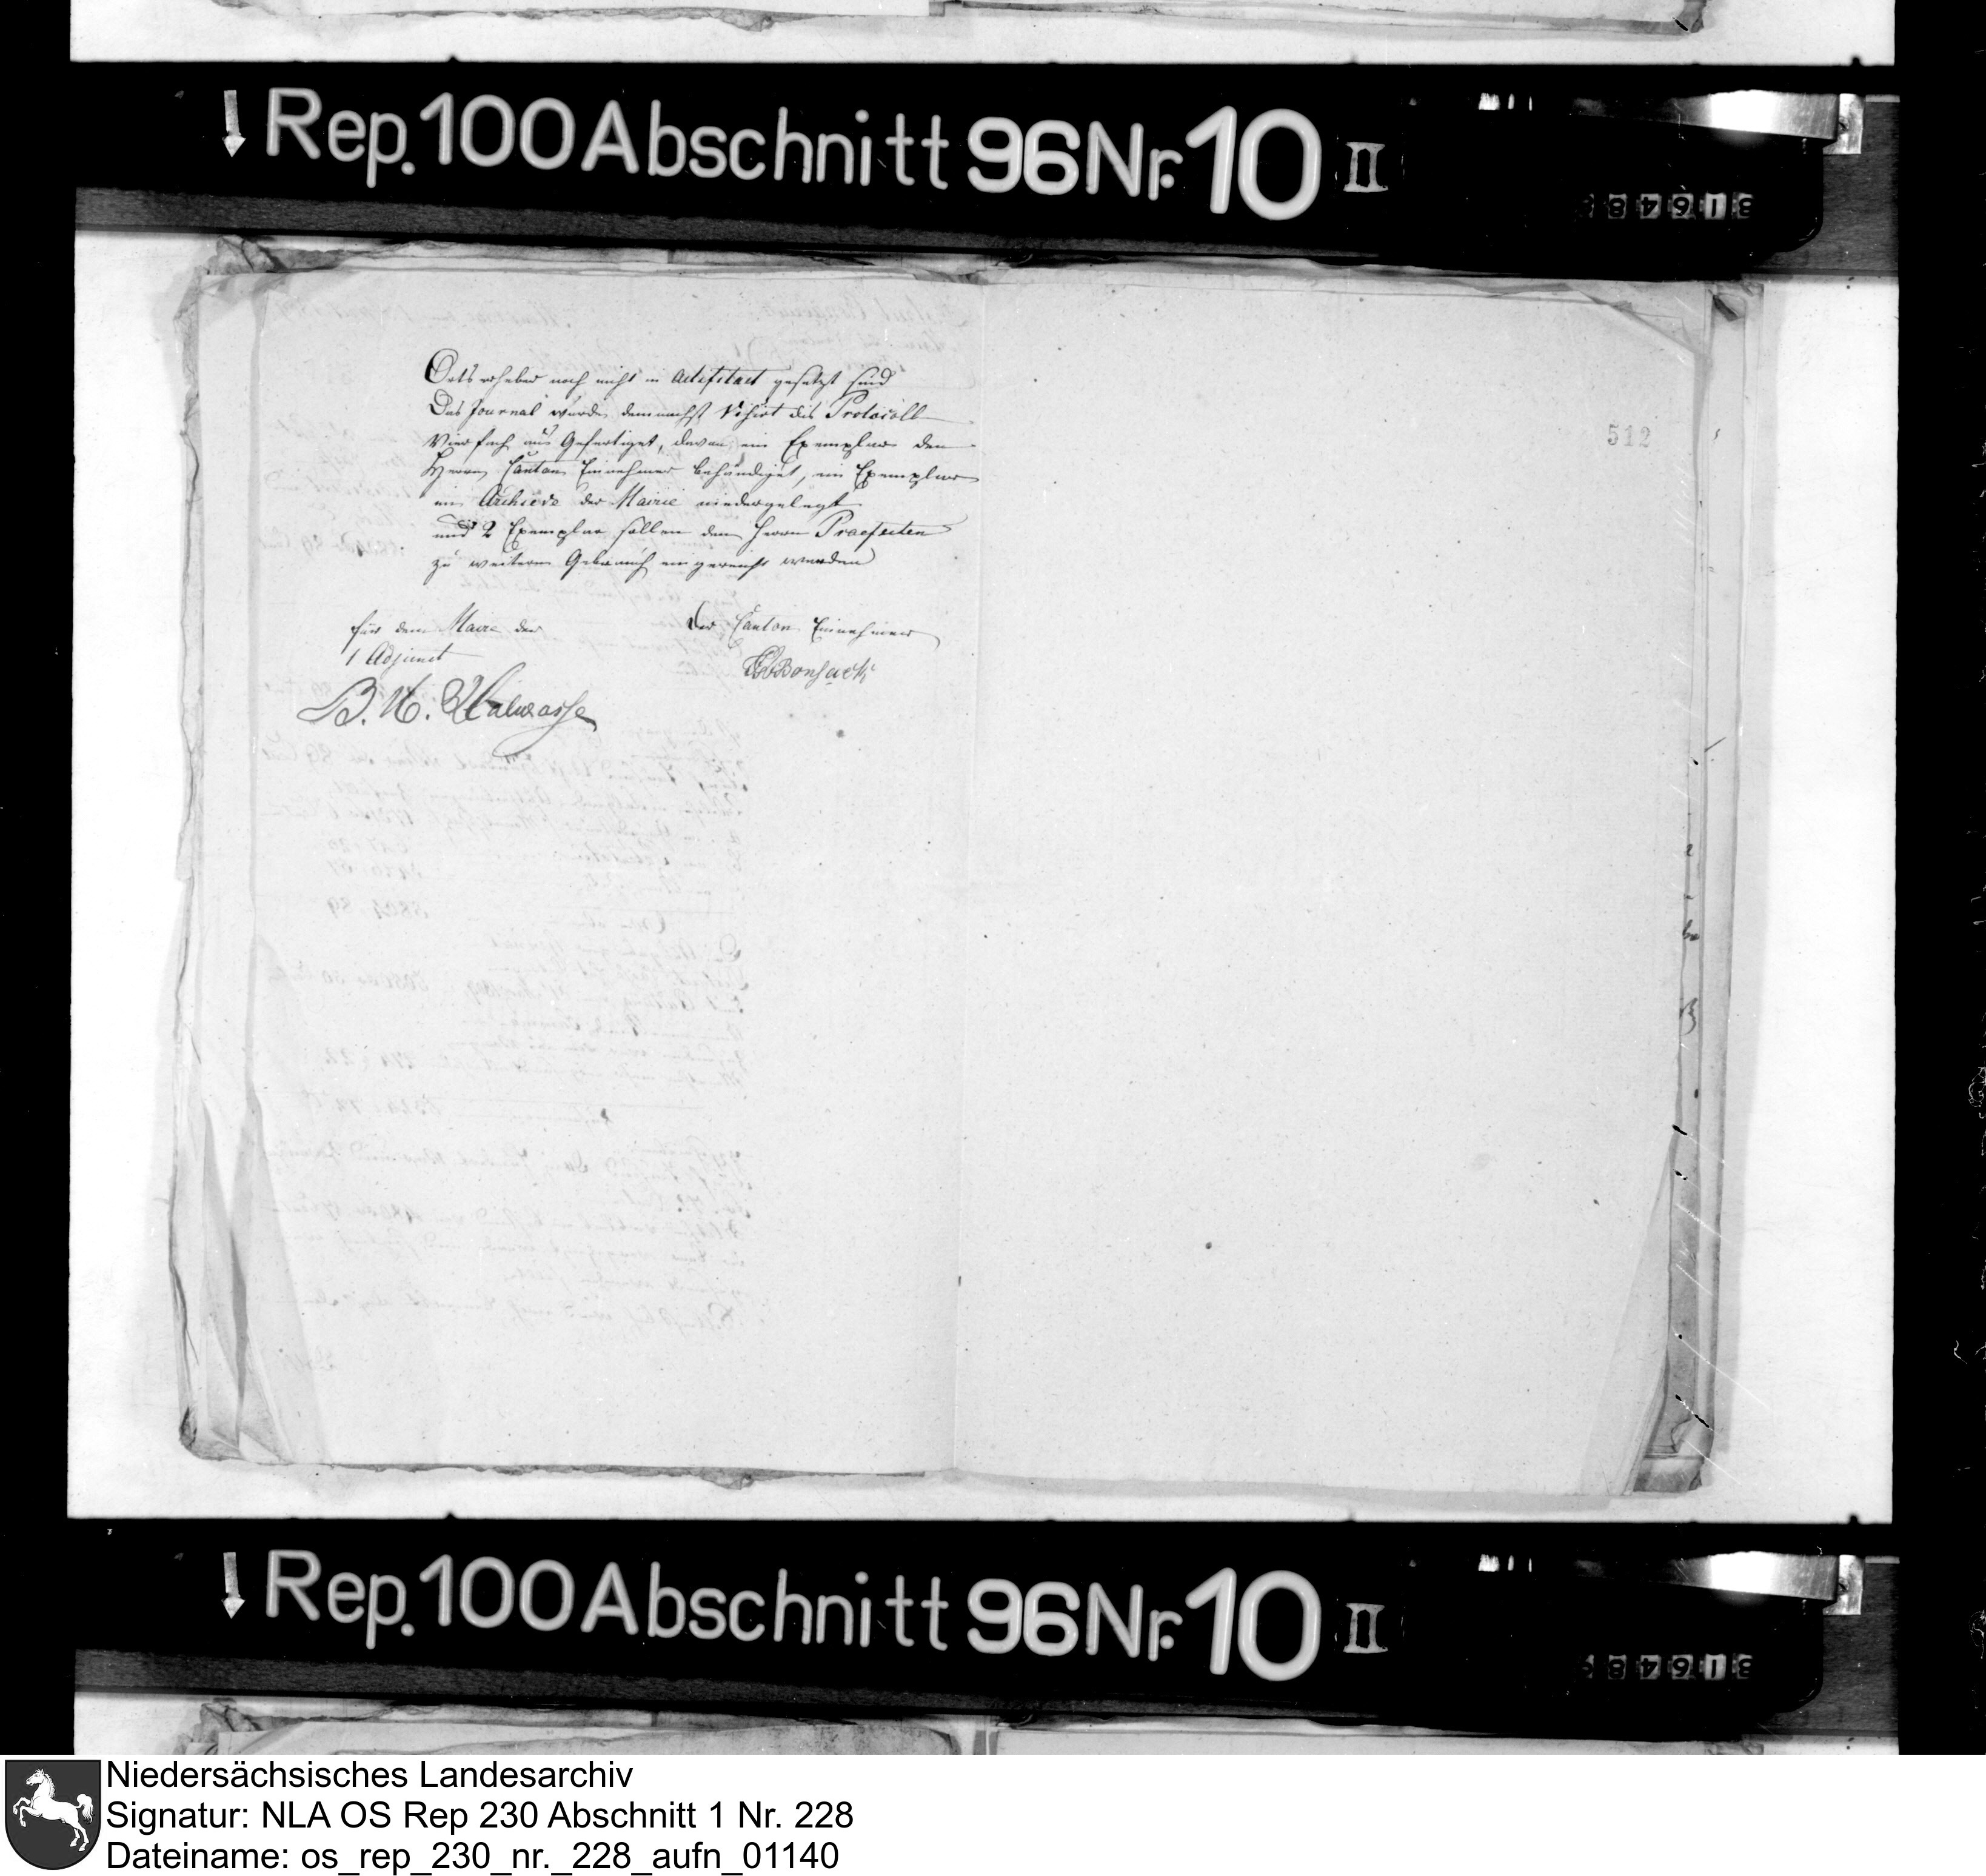 ↓ Rep. 100 Abschnitt 96 Nr. 10 II
Orts erheber noch nicht in activitaet gesetzt sind
Das Journal wurde demnachst visirt dis Protocoll
vierfach aus Gefertiget, davon ein Exemplar dem
Herrn Canton Einnehmer behändiget, ein Exemplar
im Archive der Mairie niedergelegt
und 2 Exemplar sollen dem Herrn Praefecten
zu weiterm Gebrauch eingereicht werden
für dem Maire der
1 Adjunct
B. H.
Der Canton Einnehmer
Bonsack
512
↓ Rep. 100 Abschnitt 96 Nr. 10 II
Niedersächsisches Landesarchiv
Signatur: NLA OS Rep 230 Abschnitt 1 Nr. 228
Dateiname: os_rep_230_nr._228_aufn_01140